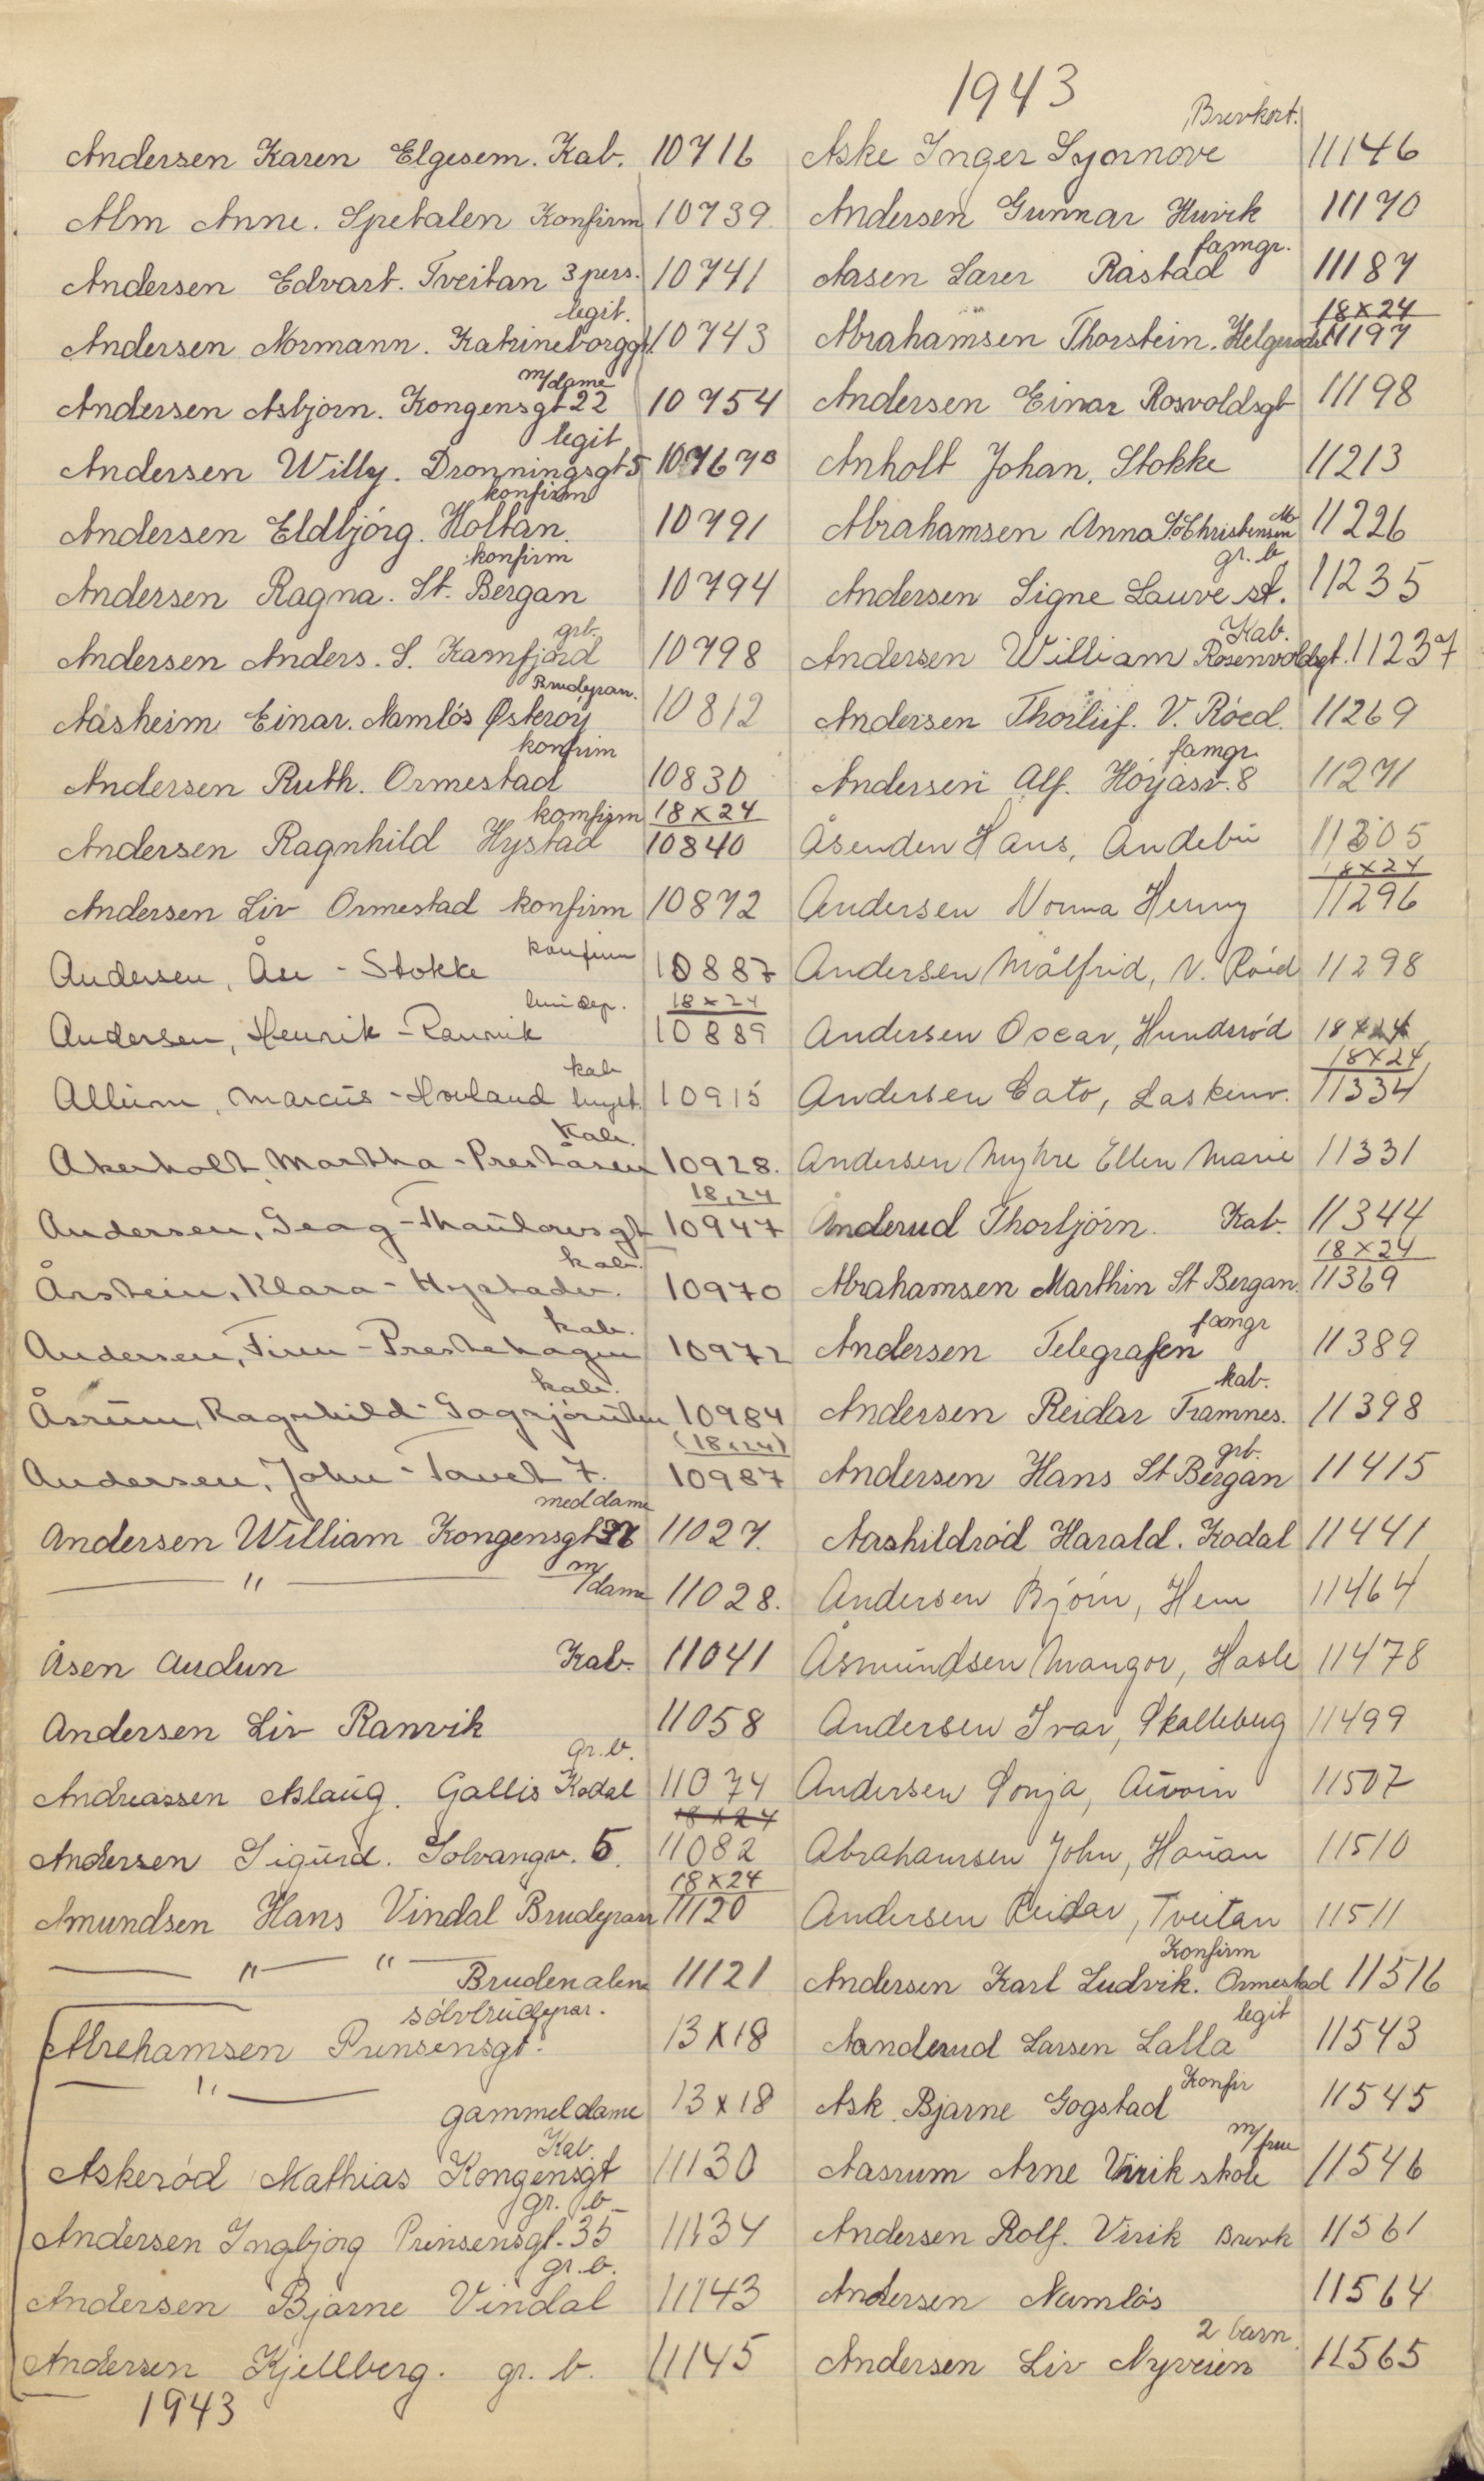 1943
Andersen Karen Elgesem. Kab. 10716
Alm Anne. Spetalen Konfirm 10739
Andersen Edvart. Tveitan 3 pers. 10741
legit.
Andersen Normann. Katrineborggt. 10743
m/dame
Andersen Asbjørn. Kongensgt 22 10754
legit
Andersen Willy. Dronningsgt 5 10767B
konfirm
Andersen Eldbjörg. Holtan. 10791
konfirm
Andersen Ragna. St. Bergan 10794
grb.
Andersen Anders. S. Kamfjord 10798
Brudepar.
Aasheim Einar. Namlös Østerøy 10812
konfirm
Andersen Ruth. Ormestad 10830
komfirm 18x24
Andersen Ragnhild Hystad 10840
Andersen Liv Ormestad konfirm 10872
konfirm
Andersen, Åu - Stokke 10887
18x24
Andersen, Henrik - Ranvik 10889
kab
Allum, Marcus - Hovland 10915
Kab.
Åkerholt Martha - Preståsen 10928.
18,24
Andersen, - Thaulowsgt 10947
kab.
Årstein, Klara - Hystadv. 10970
kab.
Andersen, Finn - Prestehagen 10972
kab.
Åsrum, Ragnhild 10984
(18x24)
Andersen, John - 7. 10987
med dame
Andersen William Kongensgt 11027.
" m/dame 11028.
Åsen Audun Kab. 11041
Andersen Liv Ranvik 11058
gr.b.
Andreassen Aslaug. Gallis Kodal 11074
18x24
Andersen Sigurd. Solvangv. 5. 11082
18x24
Amundsen Hans Vindal Brudepar 11120
" " Bruden alene 11121
sölvbrudepar.
Abrehamsen Prinsensgt. 13x18
"
gammel dame 13x18
Kab.
Askeröd Mathias Kongensgt 11130
gr. b
Andersen Ingbjörg Prinsensgt. 35 11134
gr.b.
Andersen Bjarne Vindal 11143
Andersen Kjellberg. gr. b. 11145
1943
Brevkort.
Aske Inger Synnøve 11146
Andersen Gunnar Huvik 11170
famgr.
Aasen Larer Råstad 11187
18x24
Abrahamsen Thorstein. Helgerød 11197
Andersen Einar Rosvoldsgt 11198
Anholt Johan. Stokke 11213
Abrahamsen Anna Christensen 11226
gr. b
Andersen Signe Lauve st. 11235
Kab.
Andersen William Rosenvoldsgt. 11237
Andersen Thorlief. V. Röed. 11269
famgr.
Andersen Alf. Höyåsv. 8 11271
Åsenden Hans, Andebu 11305
18x24
Andersen Norma Henny 11296
Andersen Målfrid, V. Röed 11298
Andersen Oscar, Hundsröd 18x24
18x24
Andersen Cato, Laskenv. 11334
Andersen Myhre Ellen Marie 11331
Anderud Thorbjörn. Kab. 11344
18x24
Abrahamsen Marthin St Bergan. 11369
famgr
Andersen Telegrafen 11389
kab.
Andersen Reidar Framnes. 11398
grb.
Andersen Hans St Bergan 11415
Aashildröd Harald. Kodal 11441
Andersen Björn, Hem 11464
Åsmundsen Mangor, Hasle 11478
Andersen Ivar, Skalleberg 11499
Andersen Sonja, 11507
Abrahamsen John, Hauan 11510
Andersen Reidar, Tveitan 11511
Konfirm
Andersen Karl Ludvik. Ormestad 11516
legit
Aanderud Larsen Lalla 11543
Konfir
Ask Bjarne Gogstad 11545
m/frue
Aasrum Arne Virik skole 11546
Andersen Rolf. Virik Brevk 11561
Andersen Namløs 11564
2 barn.
Andersen Liv Nyveien 11565